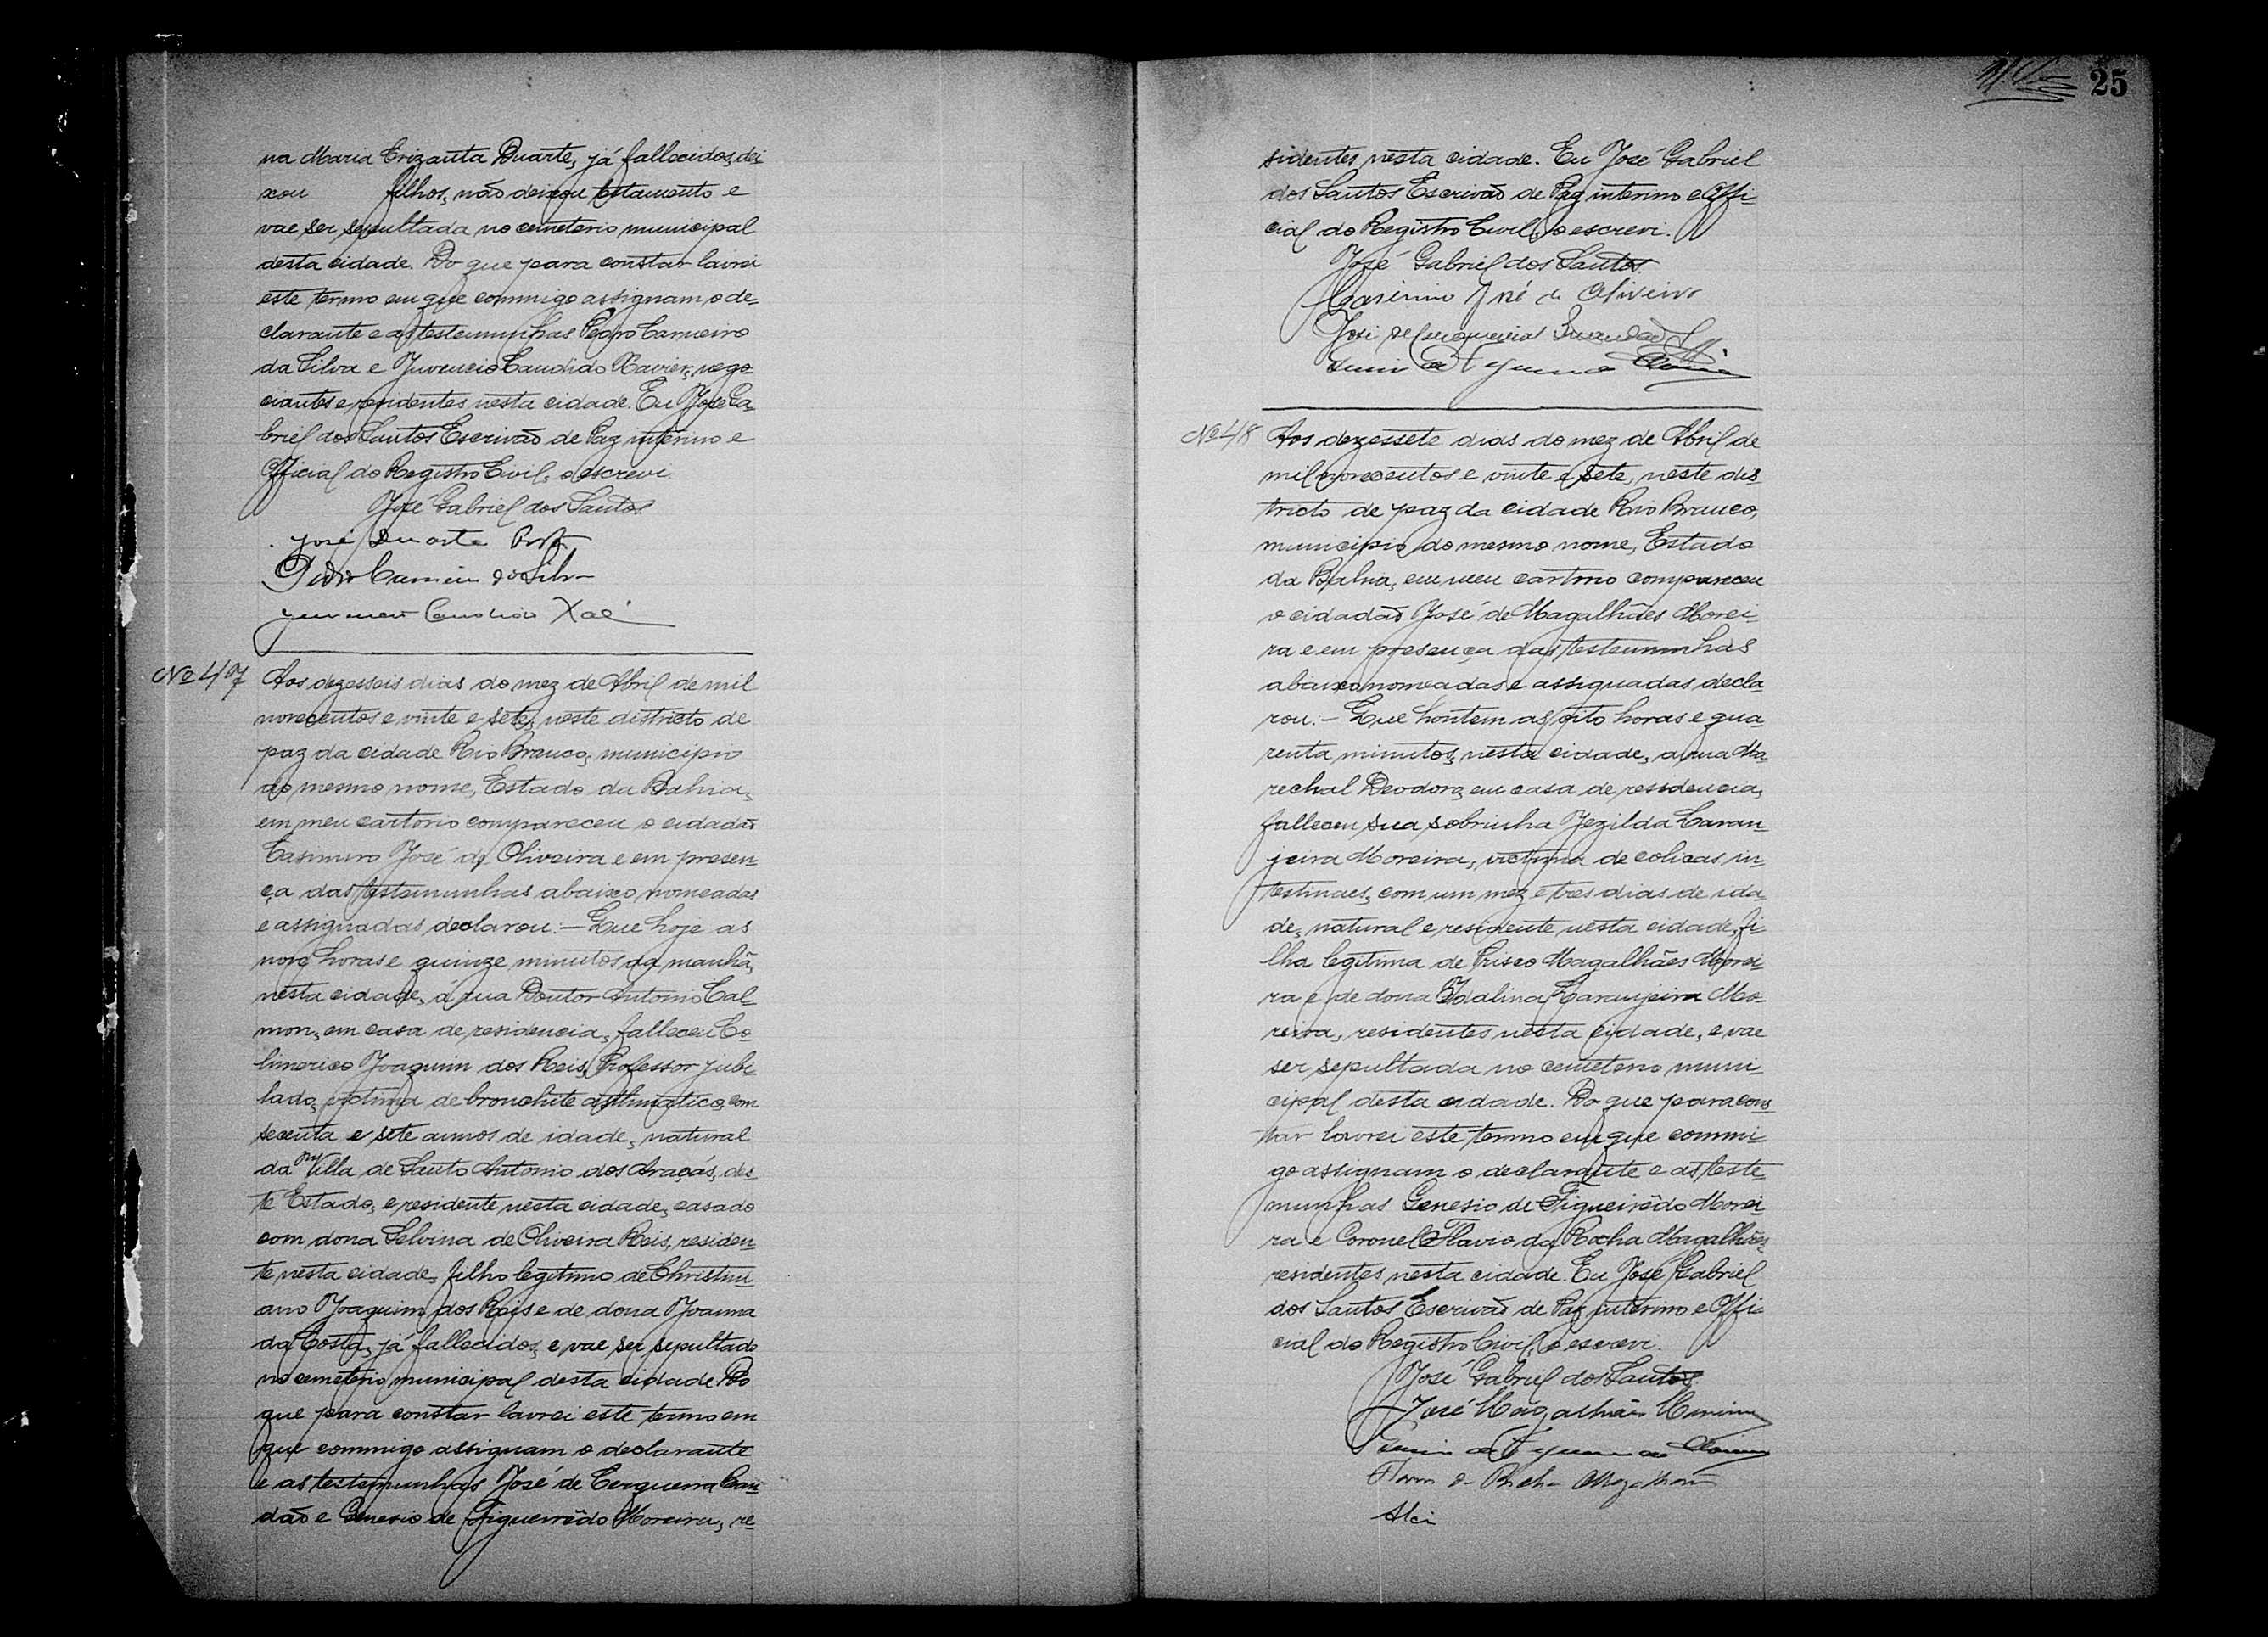 na Maria Crizanta Duarte, já fallecidos, dei
xou filhos, não deixou testamento e
vae ser sepultada no cemeterio municipal
desta cidade. Do que para constar lavrei
este termo em que commigo assignam o de-
clarante e as testemunhas Pedro Carneiro
da Silva e Juvencio Candido Xavier, nego-
ciantes e residentes nesta cidade. Eu José Ga-
briel dos Santos Escrivão de Paz interino e
Official do Registro Civil, o escrevi.
José Gabriel dos Santos.
José Duarte
Pedro Carneiro da Silva
Candido
No 47 Aos dezesseis dias do mez de Abril de mil
novecentos e vinte e sete, neste districto de
paz da cidade Rio Branco, municipio
do mesmo nome, Estado da Bahia,
em meu cartorio compareceu o cidadão
Casimiro José de Oliveira e em presen-
ça das testemunhas abaixo nomeadas
e assignadas, declarou:- Que hoje as
nove horas e quinze minutos da manhã,
nesta cidade, á rua Doutor Antonio Cal-
mon, em casa de residencia, falleceu Co-
limerico Joaquim dos Reis, Professor jubi-
lado, victima de bronchite asthmatica, com
secenta e sete annos de idade, natural
da Villa de Santo Antonio dos Araçás, des-
te Estado, e residente nesta cidade, casado
com dona Selvina de Oliveira Reis, residen-
te nesta cidade, filho legitimo de Christini
ano Joaquim dos Reis e de dona Joanna
da Costa, já fallecidos, e vae ser sepultado
no cemeterio municipal desta cidade. Do
que para constar lavrei este termo em
que commigo assignam o declarante
e as testemunhas José de Cerqueira Bran
dão e Genesio de Figueirêdo Moreira, re-
25
sidentes nesta cidade. Eu José Gabriel
dos Santos Escrivão de Paz interino e Offi-
cial do Registro Civil, o escrevi.
José Gabriel dos Santos.
Casimiro José de Oliveira
José de Cerqueira Brandão
No 48 Aos dezessete dias do mez de Abril de
mil novecentos e vinte e sete, neste dis-
tricto de paz da cidade Rio Branco,
municipio do mesmo nome, Estado
da Bahia, em meu cartorio compareceu
o cidadão José de Magalhães Morei-
ra e em presença das testemunhas
abaixo nomeadas e assignadas decla-
rou:- Que hontem as oito horas e qua
renta minutos, nesta cidade, a rua Ma-
rechal Deodoro, em casa de residencia,
falleceu sua sobrinha Jezilda Laran-
jeira Moreira, victima de colicas in-
testinaes, com um mez e tres dias de ida-
de, natural e residente nesta cidade, fi-
lha legitima de Prisco Magalhães Morei-
ra e de dona Idalina Laranjeira Mo-
reira, residentes nesta cidade, e vae
ser sepultada no cemeterio muni-
cipal desta cidade. Do que para cons
tar lavrei este termo em que commi-
go assignam o declarante e as teste-
munhas Genesio de Figueirêdo Morei-
ra e Coronel Flavio da Rocha Magalhães,
residentes nesta cidade. Eu José Gabriel
dos Santos Escrivão de Paz interino e Offi-
cial do Registro Civil, o escrevi.
José Gabriel dos Santos.
José Magalhães Moreira